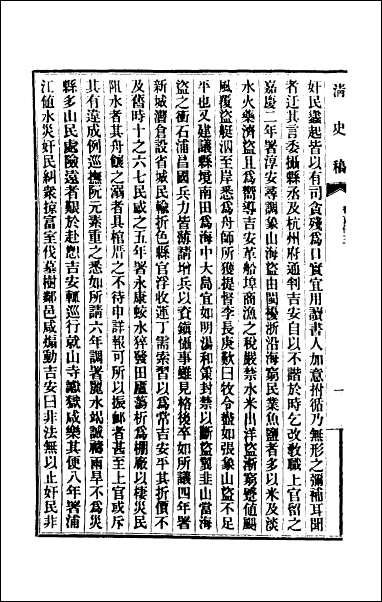 清史稿
奸民蠭起皆以有司貪殘爲口實宜用讀書人加意拊循乃無形之彌補耳聞
者迂其言委攝縣丞及杭州府通判吉安自以不諧於時乞改敎職上官留之
嘉慶二年署淳安尋調象山海盜由閩擾浙沿海窮民業魚鹽者多以米及淡
水火藥濟盜且爲嚮導吉安革船埠商漁之稅嚴禁水米出洋盜漸窮蹙値颶
風覆盜艇泅至岸悉爲舟師所獲提督李長庚歎曰牧令盡如張象山盜不足
平也又建議縣境南田爲海中大島宜如明湯和策封禁以斷盜翼韭山當海
盜之衝石浦昌國兵力皆薄請增兵以資鎭懾事雖見格後卒如所議四年署
新城漕倉設省城民輸折色縣官浮收運丁需索習以爲常吉安平其折價不
及舊時十之六七民感之五年署永康蛟水猝發田廬蕩析爲棚廠以棲災民
阻水者具舟餽之溺者具棺厝之不待申詳報可所以振䘏者甚至上官或斥
其有違成例巡撫阮元素重之悉如所請六年調署麗水竭誠禱雨旱不爲災
縣多山民處險遠者艱於赴愬吉安輒巡行就山寺讞獄咸樂其便八年署浦
江値水災奸民糾衆掠富室伐墓樹鄰邑咸煽動吉安曰非法無以止奸民非
一